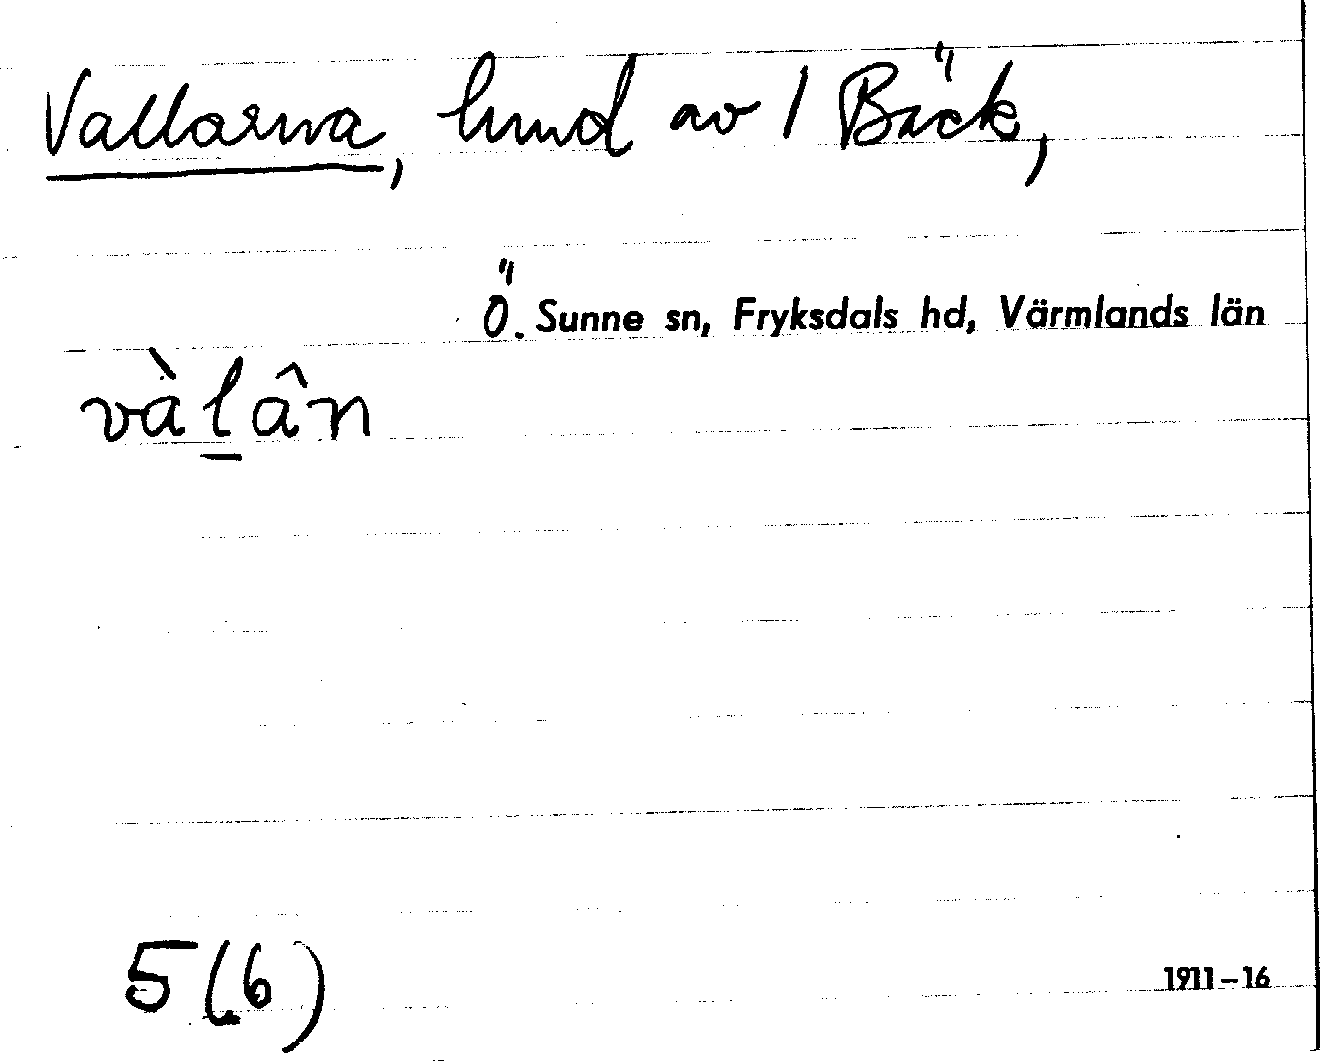 Vallarna, lund av 1 Bäck,
Ö. Sunne sn, Fryksdals hd, Värmlands län
vàl̲ân
5(6)
1911–16